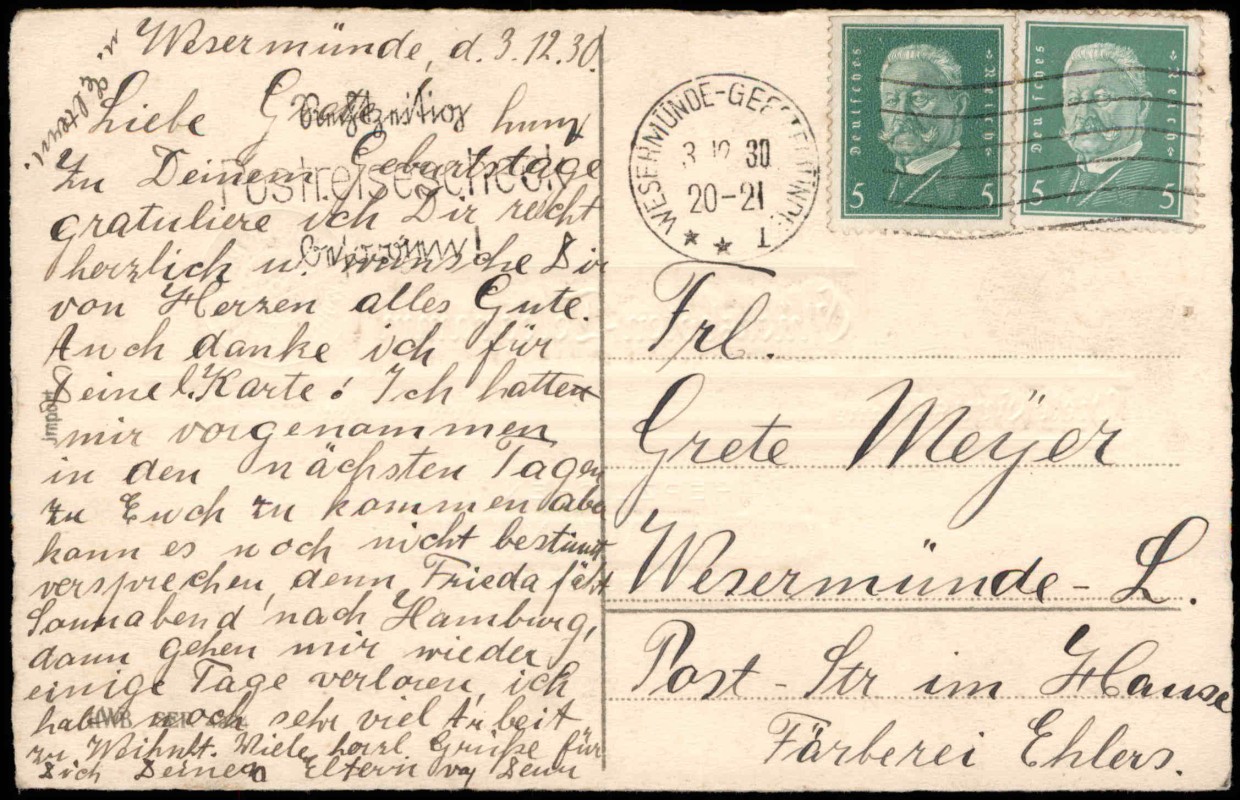 Wesermünde, d. 3.12.30.
Liebe
Zu Deinem Geburtstage
gratuliere ich Dir recht
herzlich u. wünsche Dir
von Herzen alles Gute.
Auch danke ich für
Deine l. Karte! Ich hatte
mir vorgenommen
in den nächsten Tagen
zu Euch zu kommen aber
kann es noch nicht bestimmt
versprechen, denn Frieda fährt
Sonnabend nach Hamburg,
dann gehen mir wieder
einige Tage verloren, ich
habe noch sehr viel Arbeit
zu Weihnt. Viele herzl. Grüße für
Dich Deinen Eltern
u. Eltern.
Rechtzeitig
Postreisescheck
besorgen!
Import
WESERMÜNDE-GEESTEMÜNDE
3.12.30
20-21
* * 1
Deutsches Reich
5 5
Deutsches Reich
5 5
Frl.
Grete Meÿer
Wesermünde-L.
Post-Str im Hause
Färberei Ehlers.